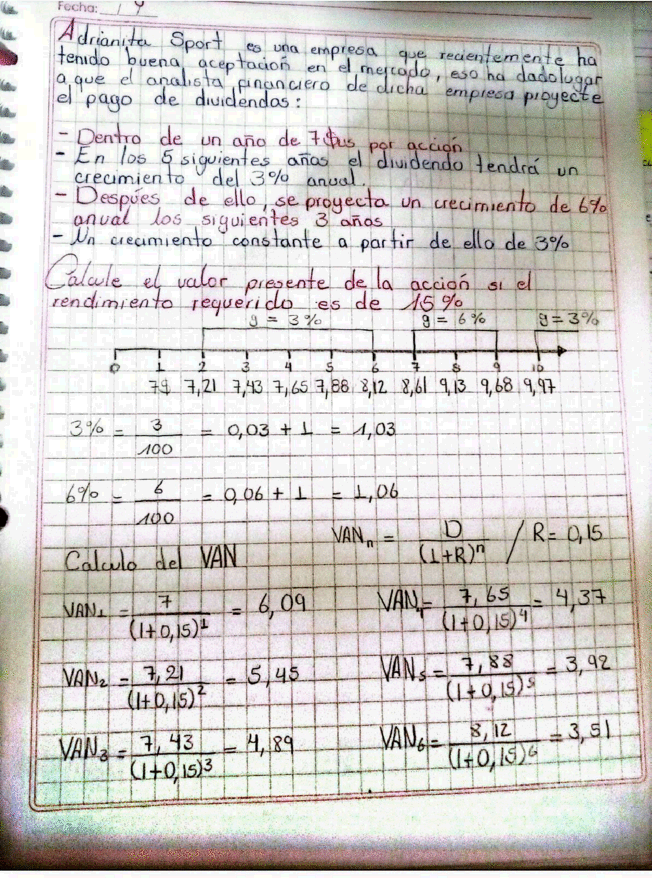 Fecha: 14
Adrianita Sport es una empresa que recientemente ha
tenido buena aceptación en el mercado, eso ha dado lugar
a que el analista financiero de dicha empresa proyecte
el pago de dividendos:
- Dentro de un año de 7$us por acción
- En los 5 siguientes años el dividendo tendrá un
crecimiento del 3% anual.
- Después de ello, se proyecta un crecimiento de 6%
anual los siguientes 3 años
- Un crecimiento constante a partir de ello de 3%
Calcule el valor presente de la acción si el
rendimiento requerido es de 15%
g = 3% g = 6% g = 3%
0 1 2 3 4 5 6 7 8 9 10
7$ 7,21 7,43 7,65 7,88 8,12 8,61 9,13 9,68 9,97
3% = 3/100 = 0,03 + 1 = 1,03
6% = 6/100 = 0,06 + 1 = 1,06
VANn = D/(1+R)^n / R = 0,15
Calculo del VAN
VAN1 = 7/(1+0,15)^1 = 6,09 VAN4 = 7,65/(1+0,15)^4 = 4,37
VAN2 = 7,21/(1+0,15)^2 = 5,45 VAN5 = 7,88/(1+0,15)^5 = 3,92
VAN3 = 7,43/(1+0,15)^3 = 4,89 VAN6 = 8,12/(1+0,15)^6 = 3,51